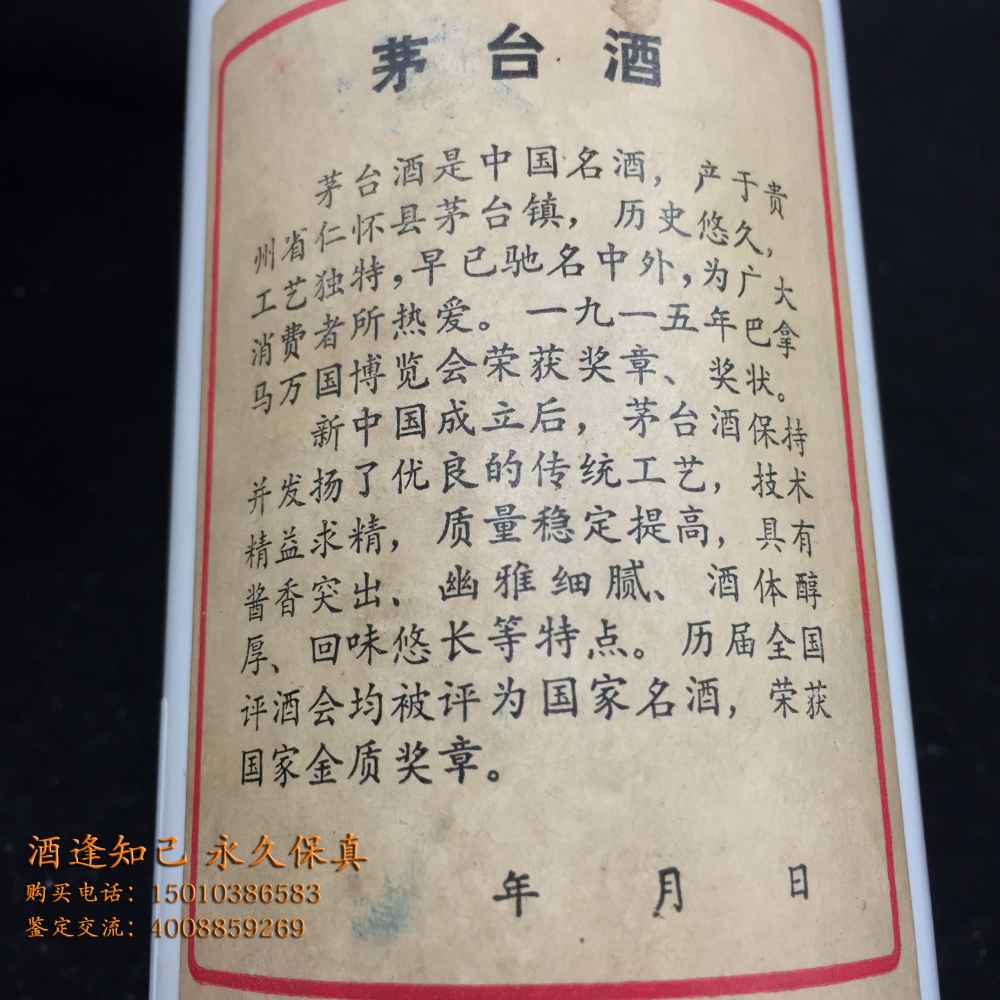 茅台酒
茅台酒是中国名酒，产于贵
州省仁怀县茅台镇，历史悠久，
工艺独特，早已驰名中外，为广大
消费者所热爱。一九一五年巴拿
马万国博览会荣获奖章、奖状。
新中国成立后，茅台酒保持
并发扬了优良的传统工艺，技术
精益求精，质量稳定提高，具有
酱香突出、幽雅细腻、酒体醇
厚、回味悠长等特点。历届全国
评酒会均被评为国家名酒，荣获
国家金质奖章。
年 月 日
酒逢知己 永久保真
购买电话：15010386583
鉴定交流：4008859269